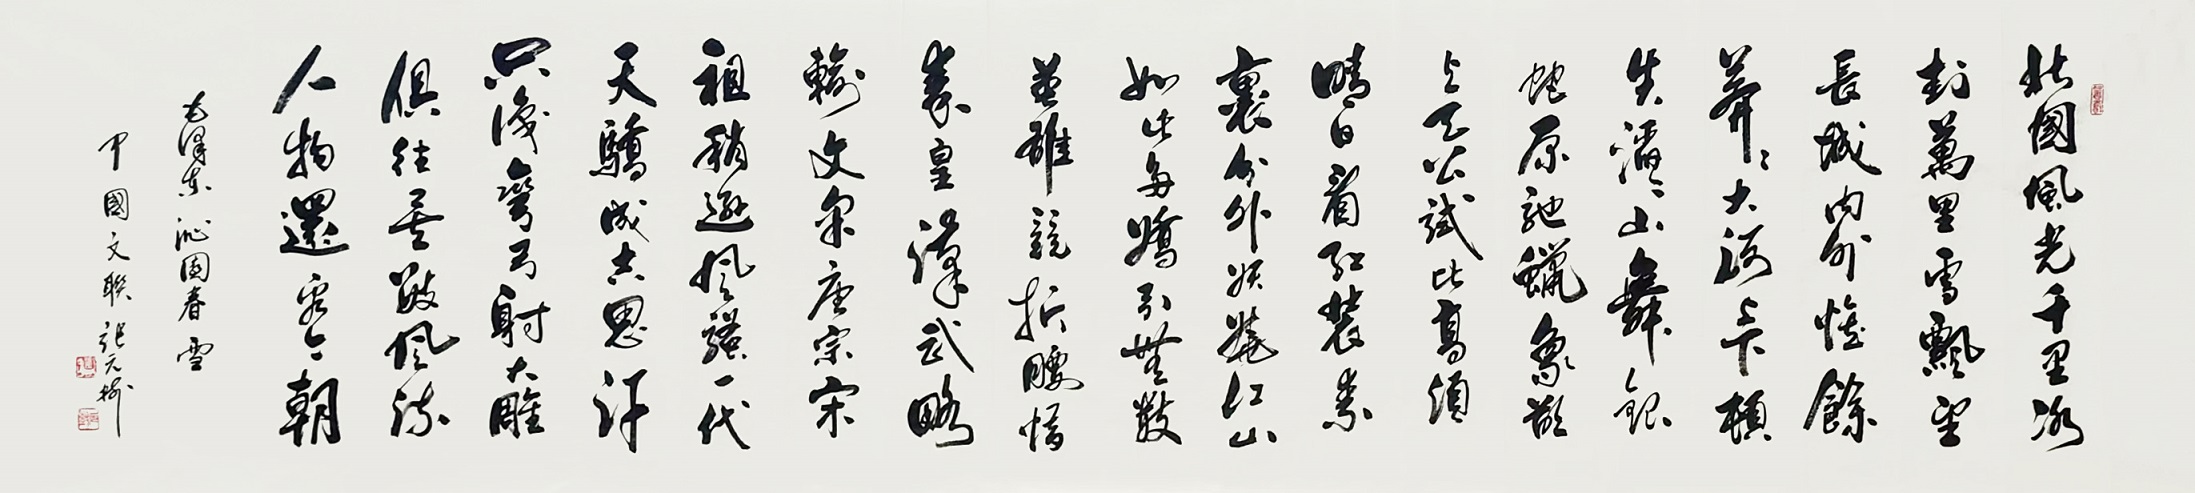 北國風光千里冰
封萬里雪飄望
長城内外惟餘
莽〻大河上下頓
失滔〻山舞銀
蛇原馳蠟象欲
与天公試比高須
晴日看紅裝素
裹分外妖嬈江山
如此多嬌引無數
英雄競折腰惜
秦皇漢武略
輸文采唐宗宋
祖稍遜風騷一代
天驕成吉思汗
只識彎弓射大雕
俱往矣數風流
人物還看今朝
毛澤東 沁園春 雪
中國文聯 張元